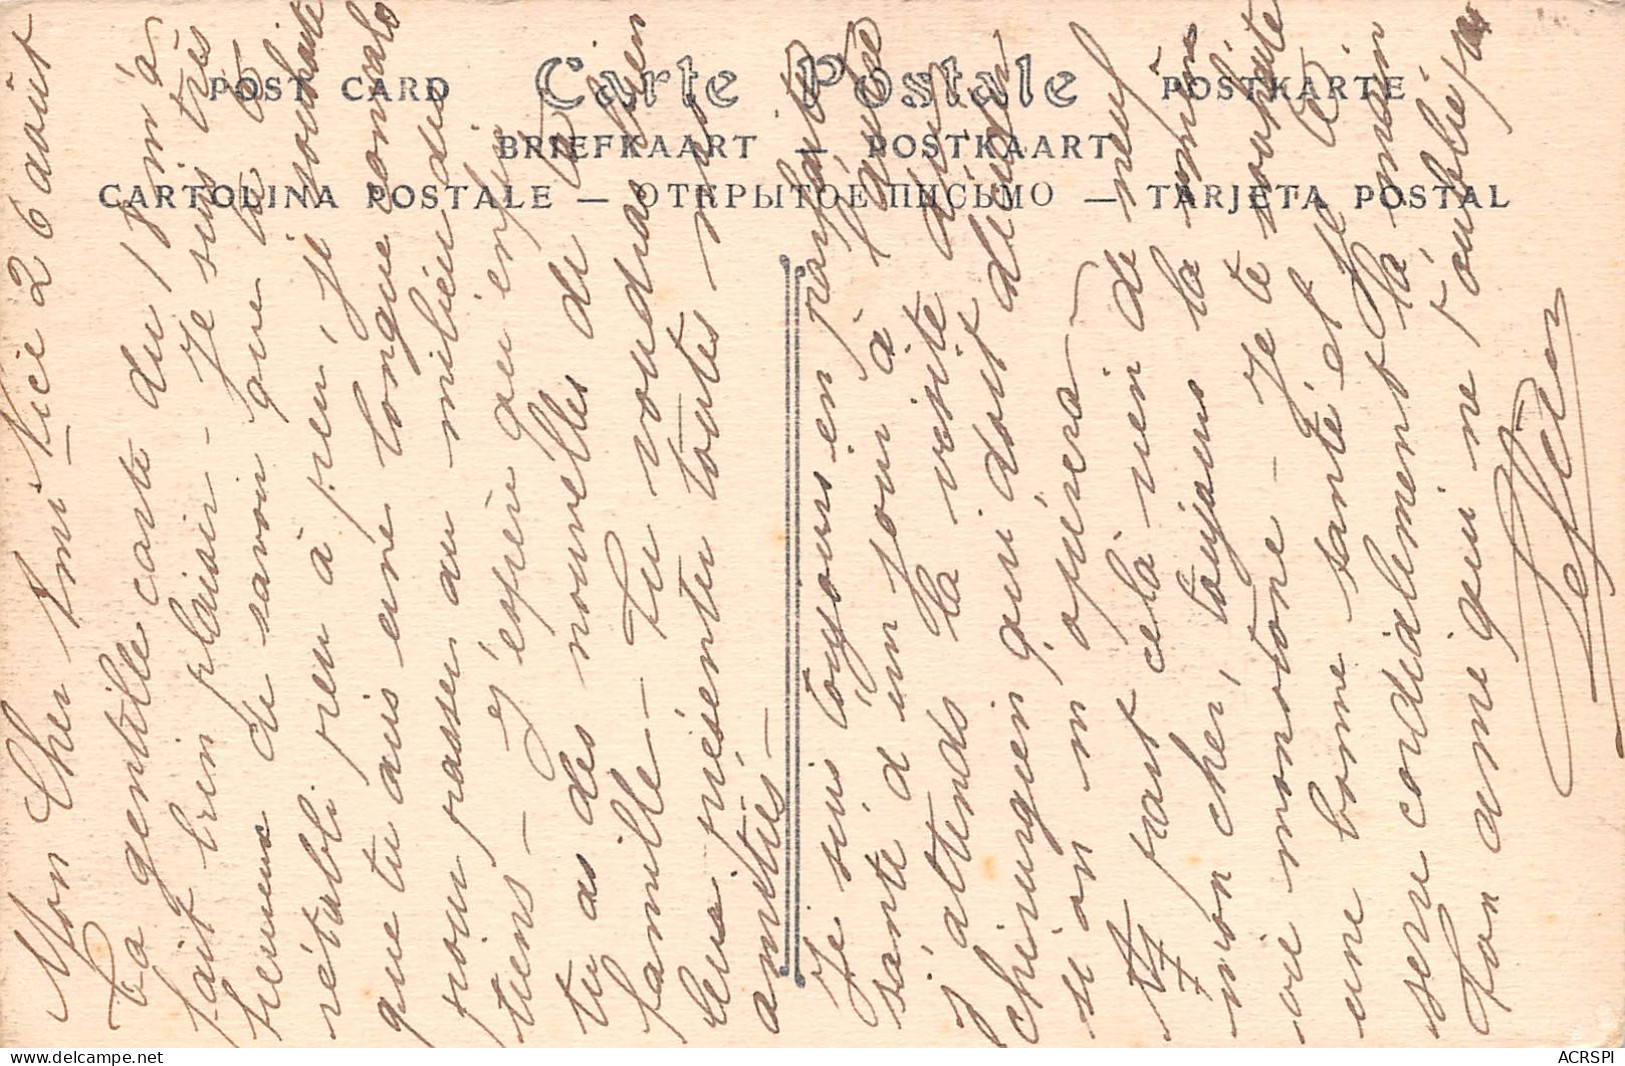 POST CARD Carte Postale POSTKARTE
BRIEFKAART — POSTKAART
CARTOLINA POSTALE — ОТКРЫТОЕ ПИСЬМО — TARJETA POSTAL
Mon Cher Ami Nice 26 août
Ta gentille carte du 18 m'a
fait bien plaisir - Je suis très
heureux de savoir que tu te
rétabli peu à peu, je souhaite
que tu ais une longue convalo
pour passer au milieu des
tiens - j'espère qu'enfin
tu as des nouvelles de ta
famille - Tu voudras bien
leur présenter toutes mes
amitiés -
Je suis toujours en parfaite
santé d'un jour à l'autre
j'attends la visite d'un
chirurgien qui doit décider
si on m'opérera -
A part cela rien de neuf
mon cher, toujours la même
vie monotone - Je te souhaite
une bonne santé et je te
serre cordialement la main
Ton ami qui ne t'oublie pas
Lefèv
ACRSPI